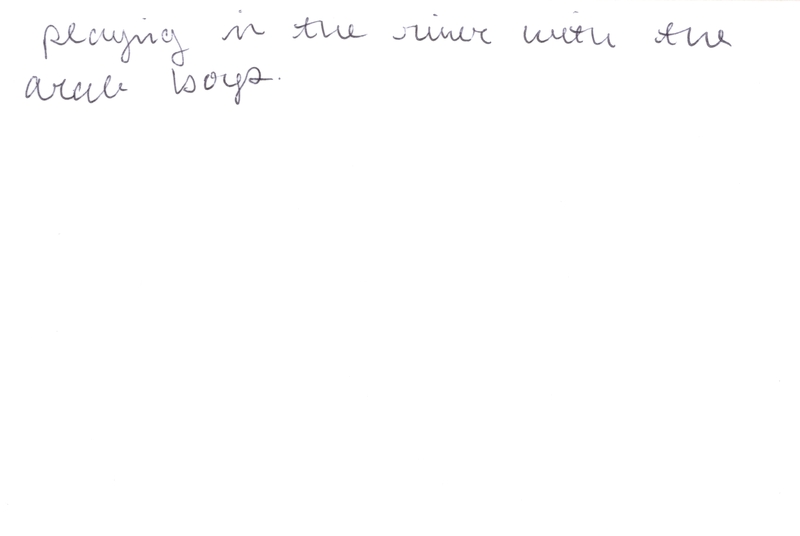 playing in the river with the
arab boys.